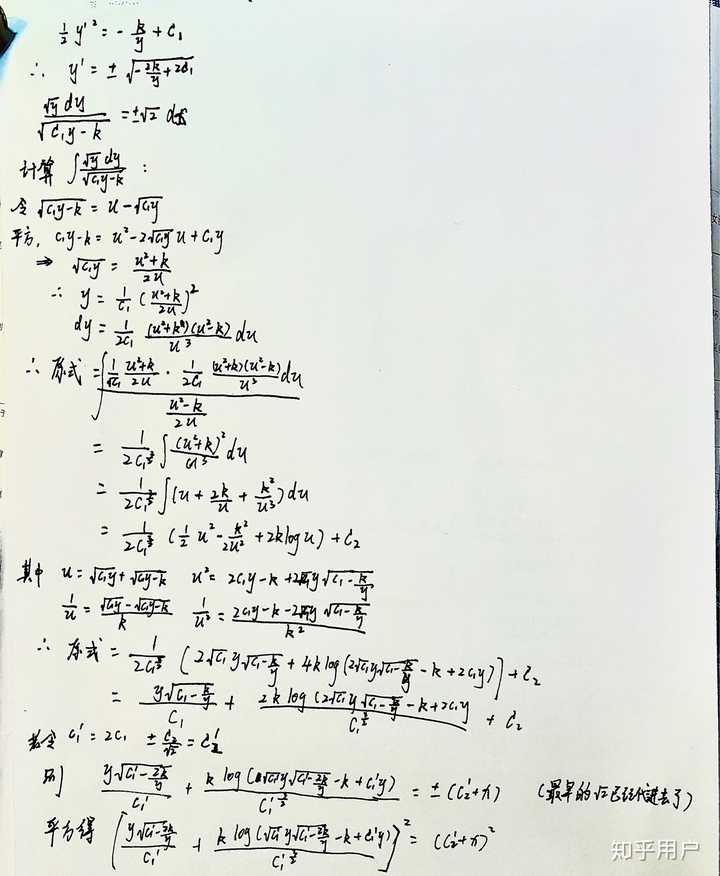 ½ y'² = - k/y + C₁
∴ y' = ± √(-2k/y + 2C₁)
√y dy / √(C₁y - k) = ±√2 dx
计算 ∫ √y dy / √(C₁y-k) :
令 √(C₁y-k) = u - √(C₁y)
平方, C₁y-k = u² - 2√(C₁y) u + C₁y
⇒ √(C₁y) = (u²+k)/(2u)
∴ y = 1/C₁ ((u²+k)/(2u))²
dy = 1/(2C₁) (u²+k)(u²-k)/u³ du
∴ 原式 = ∫ [1/√C₁ (u²+k)/(2u) · 1/(2C₁) (u²+k)(u²-k)/u³ du] / [(u²-k)/(2u)]
= 1/(2C₁^(3/2)) ∫ (u²+k)²/u³ du
= 1/(2C₁^(3/2)) ∫ (u + 2k/u + k²/u³) du
= 1/(2C₁^(3/2)) (½ u² - k²/(2u²) + 2k log u) + C₂
其中 u = √(C₁y) + √(C₁y-k) u² = 2C₁y - k + 2√C₁ y √(C₁ - k/y)
1/u = (√(C₁y) - √(C₁y-k))/k 1/u² = (2C₁y - k - 2√C₁ y √(C₁ - k/y))/k²
∴ 原式 = 1/(2C₁^(3/2)) [2√C₁ y √(C₁ - k/y) + 4k log(2√C₁ y √(C₁ - k/y) - k + 2C₁y)] + C₂
= y√(C₁ - k/y)/C₁ + 2k log(2√C₁ y √(C₁ - k/y) - k + 2C₁y)/C₁^(3/2) + C₂
令 C₁' = 2C₁ ± C₂/√2 = C₂'
则 y√(C₁' - 2k/y)/C₁' + k log(√C₁' y √(C₁' - 2k/y) - k + C₁'y)/C₁'^(3/2) = ± (C₂' + x) (最早的√2已经代进去了)
平方得 [y√(C₁' - 2k/y)/C₁' + k log(√C₁' y √(C₁' - 2k/y) - k + C₁'y)/C₁'^(3/2)]² = (C₂' + x)²
知乎用户